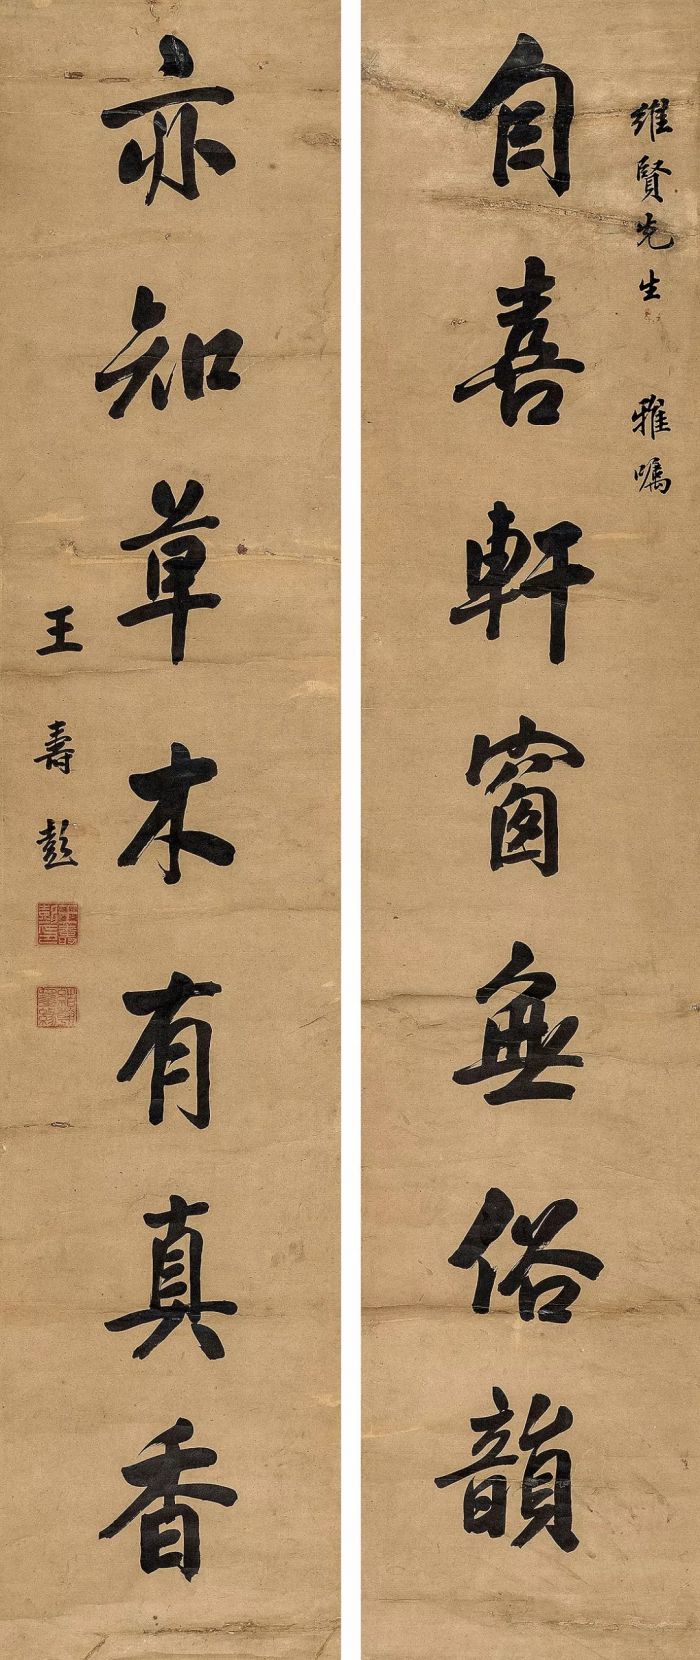 維賢先生 雅嘱
自喜軒窗無俗韻
亦知草木有真香
王壽彭